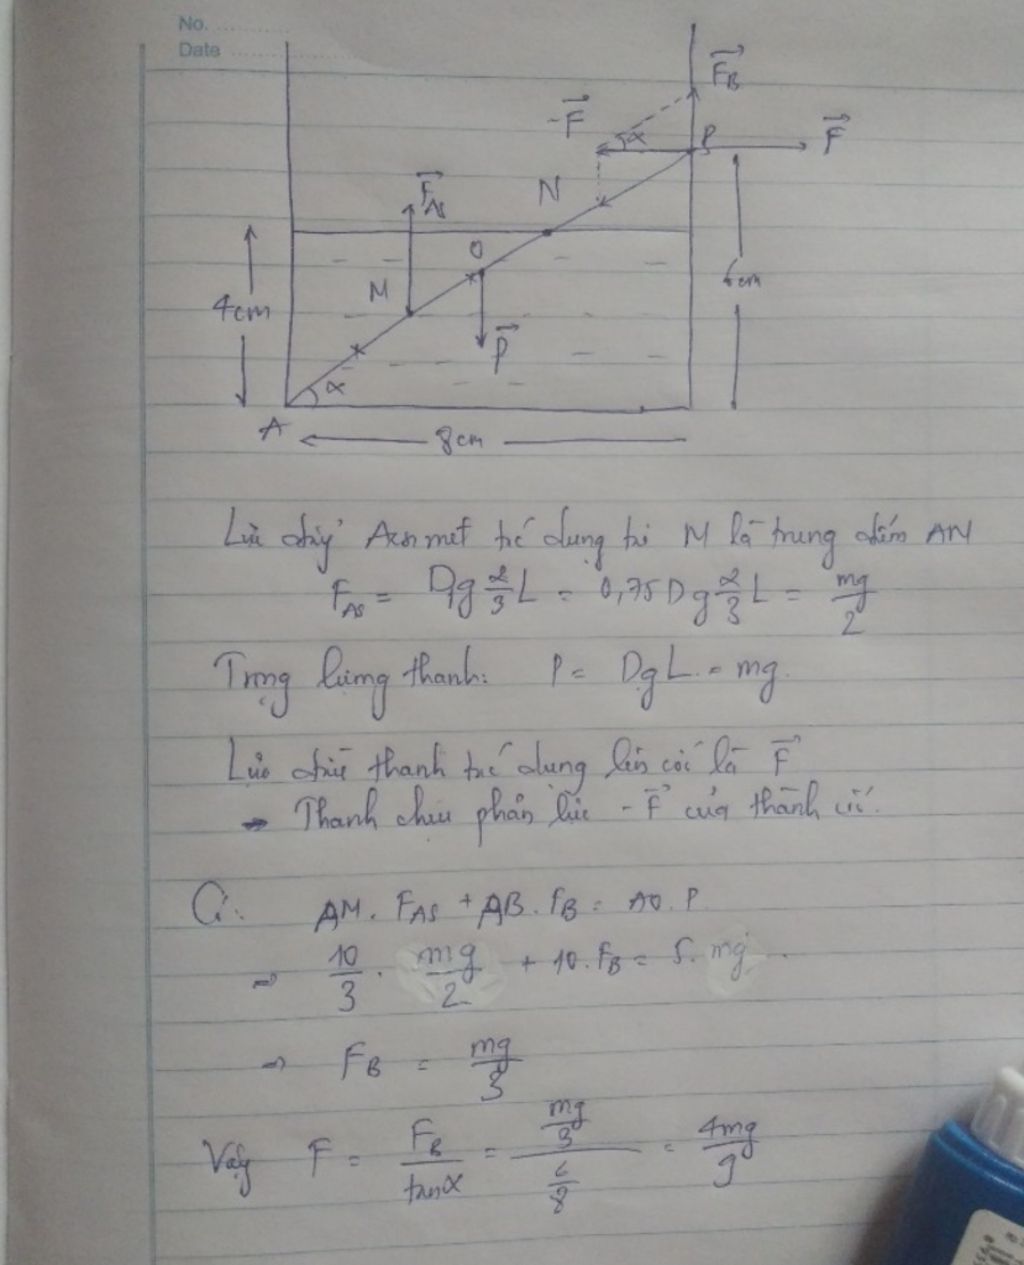 No.
Date
F_B
-F
α
P
F
F_AS
N
O
M
4cm
6cm
P
α
A
8cm
Lực đẩy Acsimet tác dụng tại M là trung điểm AN
F_AS = Dg 2/3 L = 0,75 Dg 2/3 L = mg/2
Trọng lượng thanh: P = DgL = mg.
Lực đẩy thanh tác dụng lên cốc là F
→ Thanh chịu phản lực -F của thành cốc.
Có: AM. F_AS + AB. F_B = AO. P
⇒ 10/3 . mg/2 + 10. F_B = 5. mg
⇒ F_B = mg/3
Vậy F = F_B/tanα = (mg/3)/(6/8) = 4mg/9